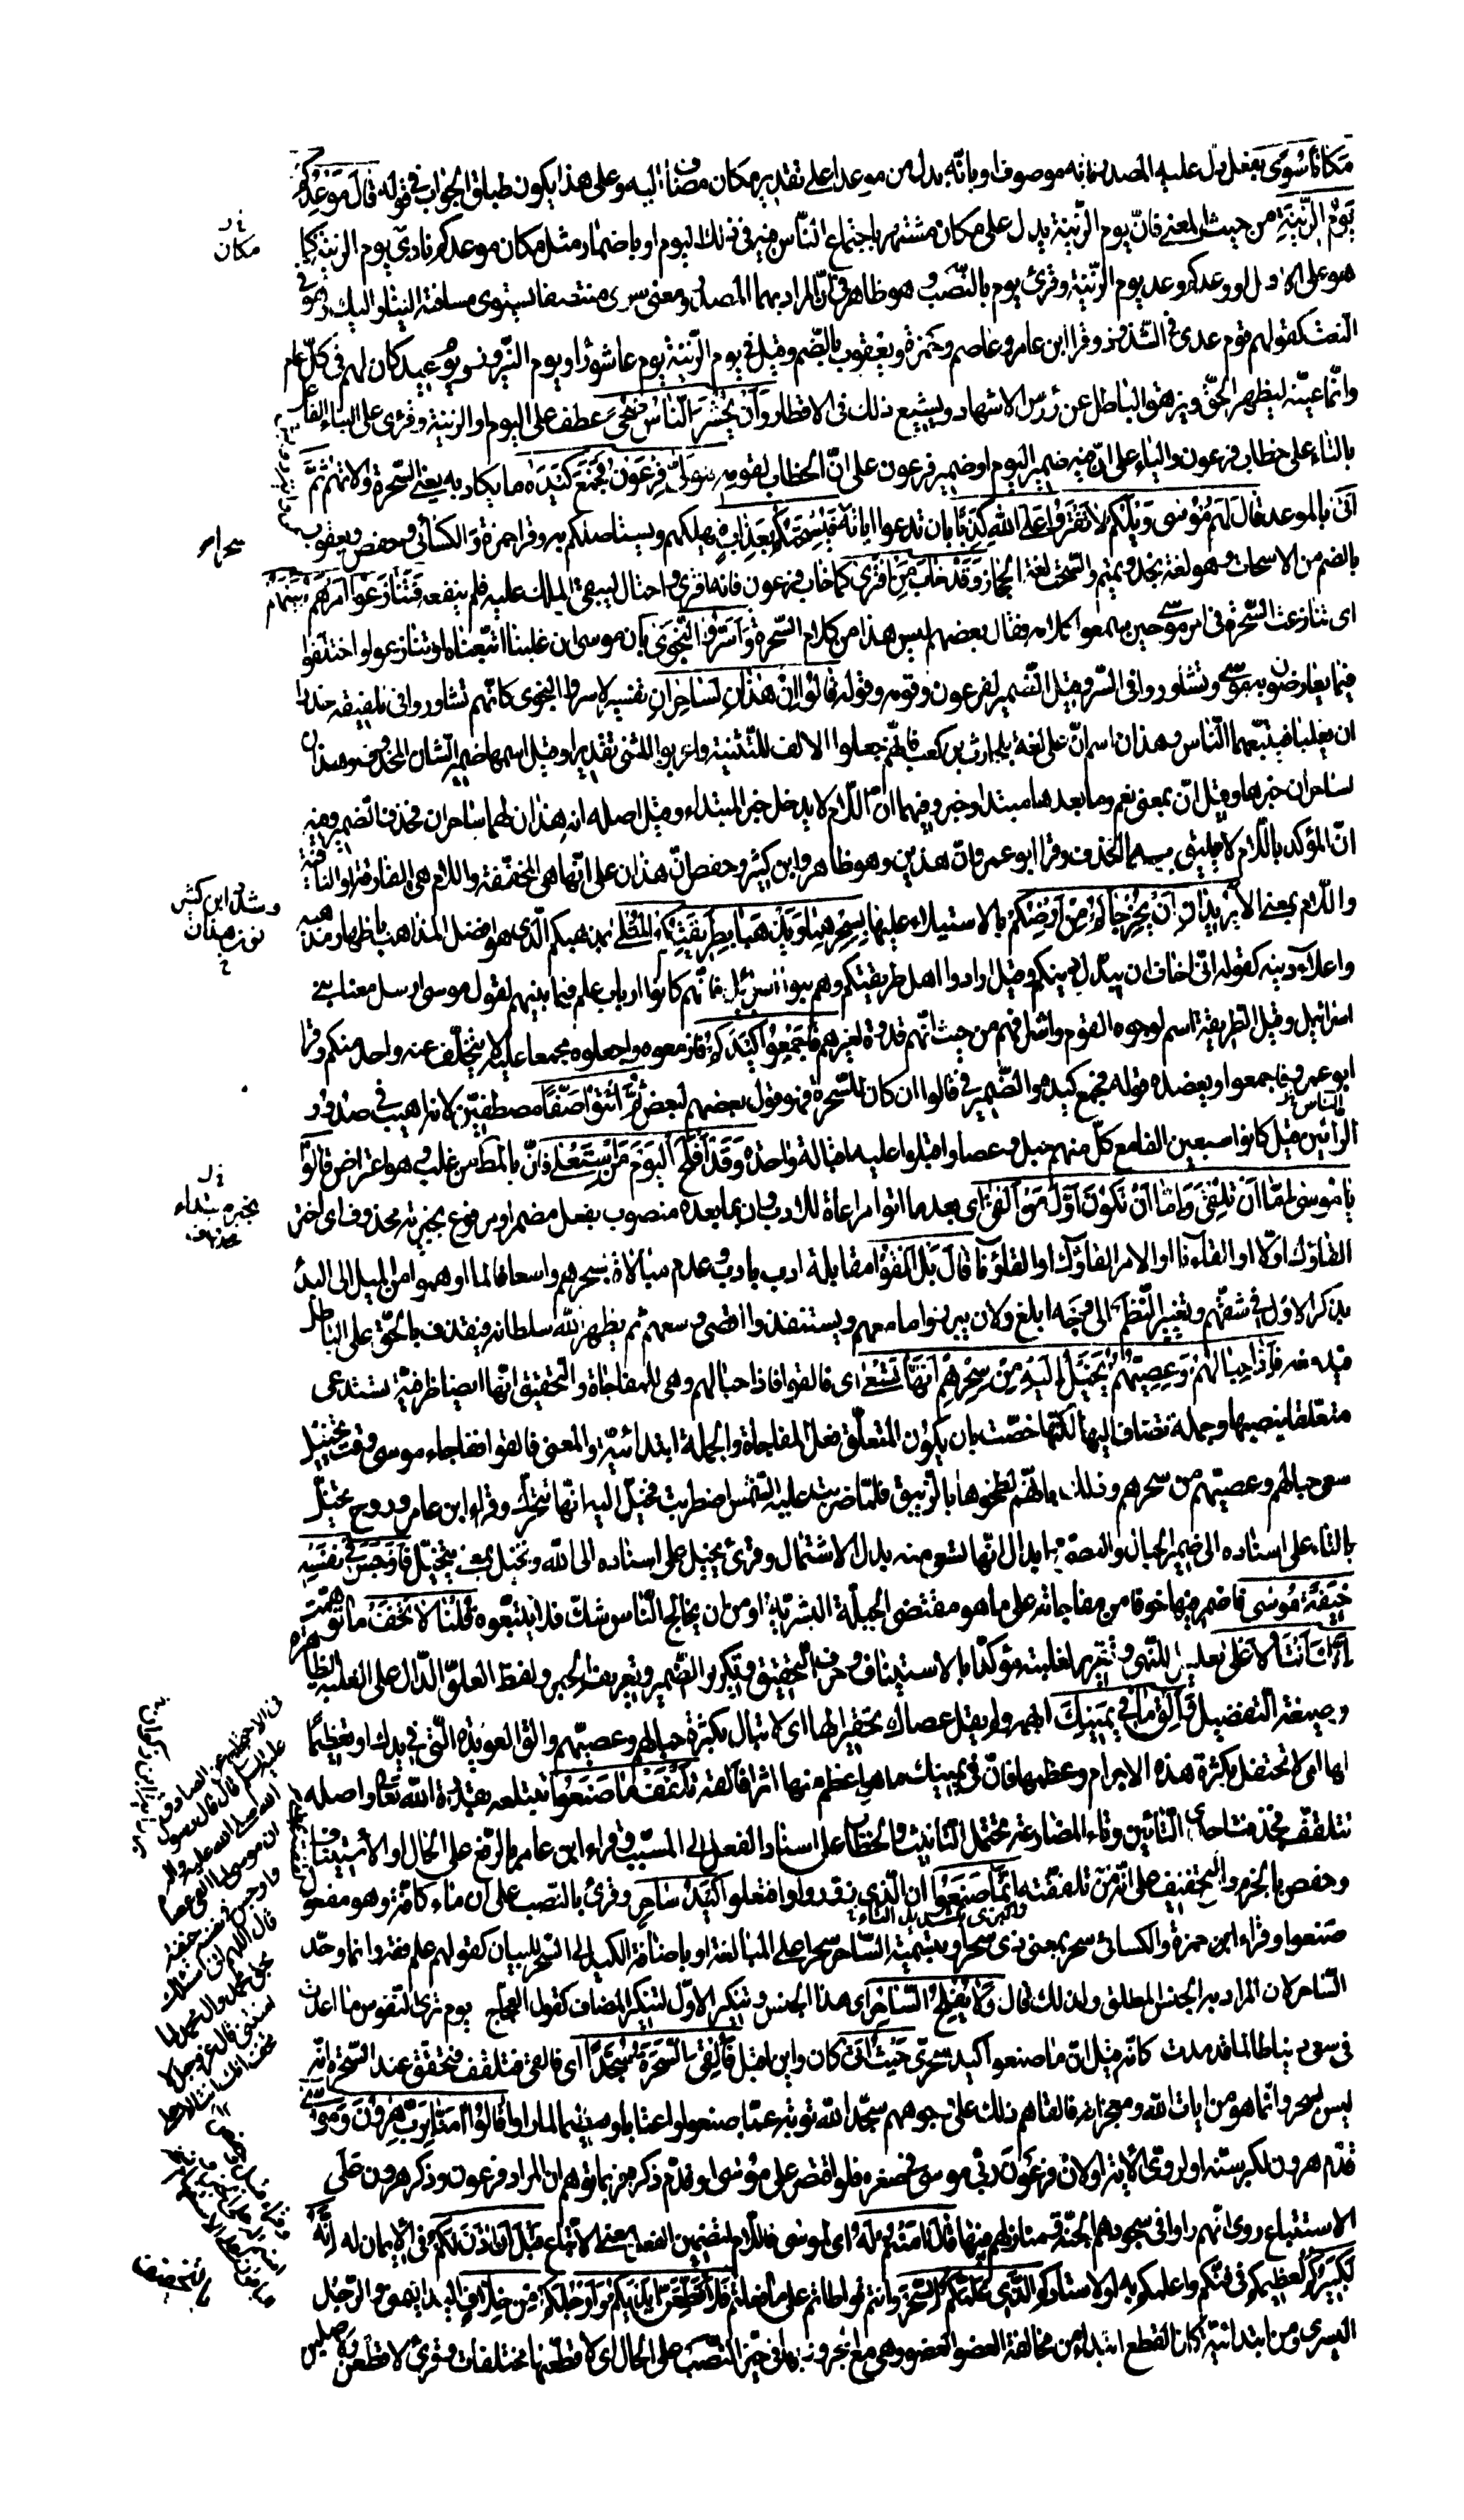 مَكَانًا سُوًى بفعل دل عليه المصدر لا به فانه موصوف او بانّه بدل من موعدا على تقدير مكان مضاف اليه وعلى هذا يكون طباق الجواب في قوله قَالَ مَوْعِدُكُمْ
يَوْمُ الزِّينَةِ من حيث المعنى فانّ يوم الزّينة يدل على مكان مشتهر باجتماع النّاس فيه في ذلك اليوم او باضمار مثل مكان موعدكم مكان يوم الزينة كما
هو على الاول او وعدكم وعد يوم الزّينة وقرئ يوم بالنّصب وهو ظاهر في انّ المراد بهما المصدر ومعنى سوى منتصفا يستوى مسافته الينا واليك وهو في
النعت كقولهم قوم عدى في الشّذوذ وقرأ ابن عامر وعاصم وحمزة ويعقوب بالضّم وقيل في يوم الزّينة يوم عاشورا او يوم النّيروز او يوم عيد كان لهم في كلّ عام
وانّما عيّنه ليظهر الحقّ ويزهق الباطل عن رؤس الاشهاد ويشيع ذلك في الاقطار وَأَنْ يُحْشَرَ النَّاسُ ضُحًى عطف على اليوم او الزينة وقرئ على البناء الفاعل
بالتاء على خطاب فرعون والياء على انّ فيه ضمير اليوم او ضمير فرعون على انّ الخطاب لقومه فَتَوَلَّى فِرْعَوْنُ فَجَمَعَ كَيْدَهُ ما يكاد به يعنى السّحرة والاتهم ثُمَّ
أَتَى بالموعد قَالَ لَهُمْ مُوسَى وَيْلَكُمْ لَا تَفْتَرُوا عَلَى اللَّهِ كَذِبًا بان تدعوا اياته سحرا فَيُسْحِتَكُمْ بِعَذَابٍ فيهلككم ويستاصلكم به وقرأ حمزة والكسائي وحفص ويعقوب
بالضم من الاسحات وهو لغة نجد وتميم والسّحت لغة الحجاز وَقَدْ خَابَ مَنِ افْتَرَى كما خاب فرعون فانه افترى واحتال ليبقى الملك عليه فلم ينفعه فَتَنَازَعُوا أَمْرَهُمْ بَيْنَهُمْ
اى تنازعت السّحرة في امر موسى حين سمعوا كلامه فقال بعضهم ليس هذا من كلام السّحرة وَأَسَرُّوا النَّجْوَى بان موسى ان غلبنا اتبّعناه او تنازعوا واختلفوا
فيما يعارضون به موسى وتشاوروا في السّر وقيل الضّمير لفرعون وقومه وقوله قَالُوا إِنْ هَذَانِ لَسَاحِرَانِ تفسير لاسروا النجوى كانهم تشاوروا في تلفيقه حذرا
ان يغلبا فيتبعهما النّاس وهذان اسم انّ على لغة بلحارث بن كعب فانهم جعلوا الالف للتّثنية واعربوا المثنى تقديرا وقيل اسمها ضمير الشان المحذوف وهذان
لساحران خبرها وقيل انّ بمعنى نعم وما بعدها مبتدا وخبر وفيهما انّ اللّام لا يدخل خبر المبتداء وقيل اصله انه هذان لهما ساحران فحذف الضمير وفيه
انّ المؤكد باللّام لا يليق به الحذف وقرأ ابو عمرو انّ هذين وهو ظاهر وابن كثير وحفص ان هذان على انّها هى المخفّفة واللام هى الفارقة او النافية
واللّام بمعنى الا يُرِيدَانِ أَنْ يُخْرِجَاكُمْ مِنْ أَرْضِكُمْ بالاستيلاء عليها بِسِحْرِهِمَا وَيَذْهَبَا بِطَرِيقَتِكُمُ الْمُثْلَى بمذهبكم الّذى هو افضل المذاهب باظهار مذهبه
واعلاء دينه كقوله انّى اخاف ان يبدّل دينكم وقيل ارادوا اهل طريقتكم وهم بنوا اسرائيل فانّهم كانوا ارباب علم فيما بينهم لقول موسى ارسل معنا بنى
اسرائيل وقيل الطريقة اسم لوجوه القوم واشرافهم من حيث انّهم قدوة لغيرهم فَأَجْمِعُوا كَيْدَكُمْ فازمعوه واجعلوه مجمعا عليه لا يتخلّف عنه واحد منكم وقرأ
ابو عمرو فاجمعوا ويعضده قوله فجمع كيده والضّمير في قالوا ان كان للسّحرة فهو قول بعضهم لبعض ثُمَّ ائْتُوا صَفًّا مصطفيّن لانه اهيب في صدور
الرائين قيل كانوا سبعين الفا مع كلّ منهم حبل وعصا واقبلوا عليه اقبالة واحدة وَقَدْ أَفْلَحَ الْيَوْمَ مَنِ اسْتَعْلَى فاز بالمطلوب من غلب وهو اعتراض قَالُوا
يَا مُوسَى إِمَّا أَنْ تُلْقِيَ وَإِمَّا أَنْ نَكُونَ أَوَّلَ مَنْ أَلْقَى اى بعد ما اتوا مراعاة للادب وان بما بعده منصوب بفعل مضمر او مرفوع بخبرية محذوف اى اختر
القاؤك اوّلا او القاءنا او الامر القاؤك او القاؤنا قَالَ بَلْ أَلْقُوا مقابلة ادب بادب وعدم مبالاة بسحرهم واسعافا لما اوهموا من الميل الى البدء
بذكر الاول في شقّهم وتغيير النّظم الى وجه ابلغ ولان يبرزوا ما معهم ويستنفدوا اقصى وسعهم ثم يظهر الله سلطانه فيقذف بالحقّ على الباطل
فيدمغه فَإِذَا حِبَالُهُمْ وَعِصِيُّهُمْ يُخَيَّلُ إِلَيْهِ مِنْ سِحْرِهِمْ أَنَّهَا تَسْعَى اى فالقوا فاذا حبالهم وهى للمفاجاة والتحقيق انّها ايضا ظرفيّة تستدعى
متعلقا ينصبها وجملة تضاف اليها لكنّها خصّت بان يكون المتعلّق فعل المفاجاة والجملة ابتدائيّة والمعنى فالقوا ففاجاء موسى وقت تخييل
سعى حبالهم وعصيّهم من سحرهم وذلك بانهم لطخوها بالزيبق فلمّا ضربت عليه الشّمس اضطربت فخيّل اليه انّها تتحرّك وقراء ابن عامر وروح تخيّل
بالتاء على اسناده الى ضمير الحبال والعصىّ وابدال انّها تسعى منه بدل الاشتمال وقرئ يخيل على اسناده الى الله وتخيل بمعنى تتخيّل فَأَوْجَسَ فِي نَفْسِهِ
خِيفَةً مُوسَى فاضمر فيها خوفا من مفاجاته على ما هو مقتضى الجبلّة البشريّة او من ان يخالج النّاس شك فلا يتبعوه قُلْنَا لَا تَخَفْ ما توهمت
إِنَّكَ أَنْتَ الْأَعْلَى تعليل للنّهى وتقرير لغلبته مؤكدا بالاستيناف وحرف التحقيق وتكرير الضّمير وتعريف الخبر ولفظ العلوّ الدّال على الغلبة الظاهرة
وصيغة التفضيل وَأَلْقِ مَا فِي يَمِينِكَ ابهمه ولم يقل عصاك تحقيرا لها اى لا تبال بكثرة حبالهم وعصيّهم والق العويدة الّتى في يدك او تعظيما
لها اى لا تحتفل بكثرة هذه الاجرام وعظمها فانّ في يمينك ما هو اعظم منها اثرا فالقه تَلْقَفْ مَا صَنَعُوا تبتلعه بقدرة الله تعالى واصله
تتلقّف فحذفت احدى التّائين وتاء المضارعة تحتمل التانيث والخطاب على اسناد الفعل الى المسبّب وقراء ابن عامر بالرّفع على الحال او الاستيناف
وحفص بالجزم والتخفيف على انّه من تلقفته إِنَّمَا صَنَعُوا ان الّذى زوروا وافتعلوا كَيْدُ سَاحِرٍ وقرئ بالنّصب على ان ماء كافّة وهو مفعول
صنعوا وقراء ابن حمزة والكسائى سحر بمعنى ذى سحر او بتسمية السّاحر سحرا على المبالغة او باضافة الكيد الى السّحر للبيان كقولهم علم فقه وانما وحّد
السّاحر لان المراد به الجنس المطلق ولذلك قال وَلَا يُفْلِحُ السَّاحِرُ اى هذا الجنس وتنكير الاوّل لتنكير المضاف كقول العجّاج يوم ترى النّفوس ما اعدت
في سعى دنيا طالما قد مدت كانّه قيل انّ ما صنعوا كيد سحرىّ حَيْثُ أَتَى كان واين اقبل فَأُلْقِيَ السَّحَرَةُ سُجَّدًا اى فالقى فتلقف فتحقق عند السّحرة انّه
ليس بسحر وانّما هو من ايات الله ومعجزاته فالقاهم ذلك على وجوههم سجّدا لله توبة عمّا صنعوا واعتابا وتعظيما لما راوا قَالُوا آمَنَّا بِرَبِّ هَارُونَ وَمُوسَى
قدّم هرون لكبر سنّه او لروىّ الاية او لان فرعون ربّى موسى في صغره فلو اقتصر على موسى او قدّم ذكره فربما توهم ان المراد فرعون وذكر هرون على
الاستتباع روى انهم راوا في سجودهم الجنّة ومنازلهم فيها قَالَ آمَنْتُمْ لَهُ اى لموسى واللّام لتضمين الفعل معنى الاتّباع قَبْلَ أَنْ آذَنَ لَكُمْ في الايمان له إِنَّهُ
لَكَبِيرُكُمُ لعظيمكم في فنّكم واعلمكم به او لاستاذكم الَّذِي عَلَّمَكُمُ السِّحْرَ وانتم تواطاتم على ما فعلتم فَلَأُقَطِّعَنَّ أَيْدِيَكُمْ وَأَرْجُلَكُمْ مِنْ خِلَافٍ اليد اليمنى والرّجل
اليسرى ومن ابتدائيّة كانّ القطع ابتداء من مخالفة العضو العضو وهى مع المجرور بها في حيّز النّصب على الحال اى لاقطّعنّها مختلفات وقرئ لاقطعن ولاصلبن
مكان
سحرا
وشدد ابن كثير
نون هذان
بخبره مبتداء
محذوف
بالتخفيف